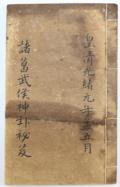 皇清光緒元年五月
諸葛武侯神卦秘笈